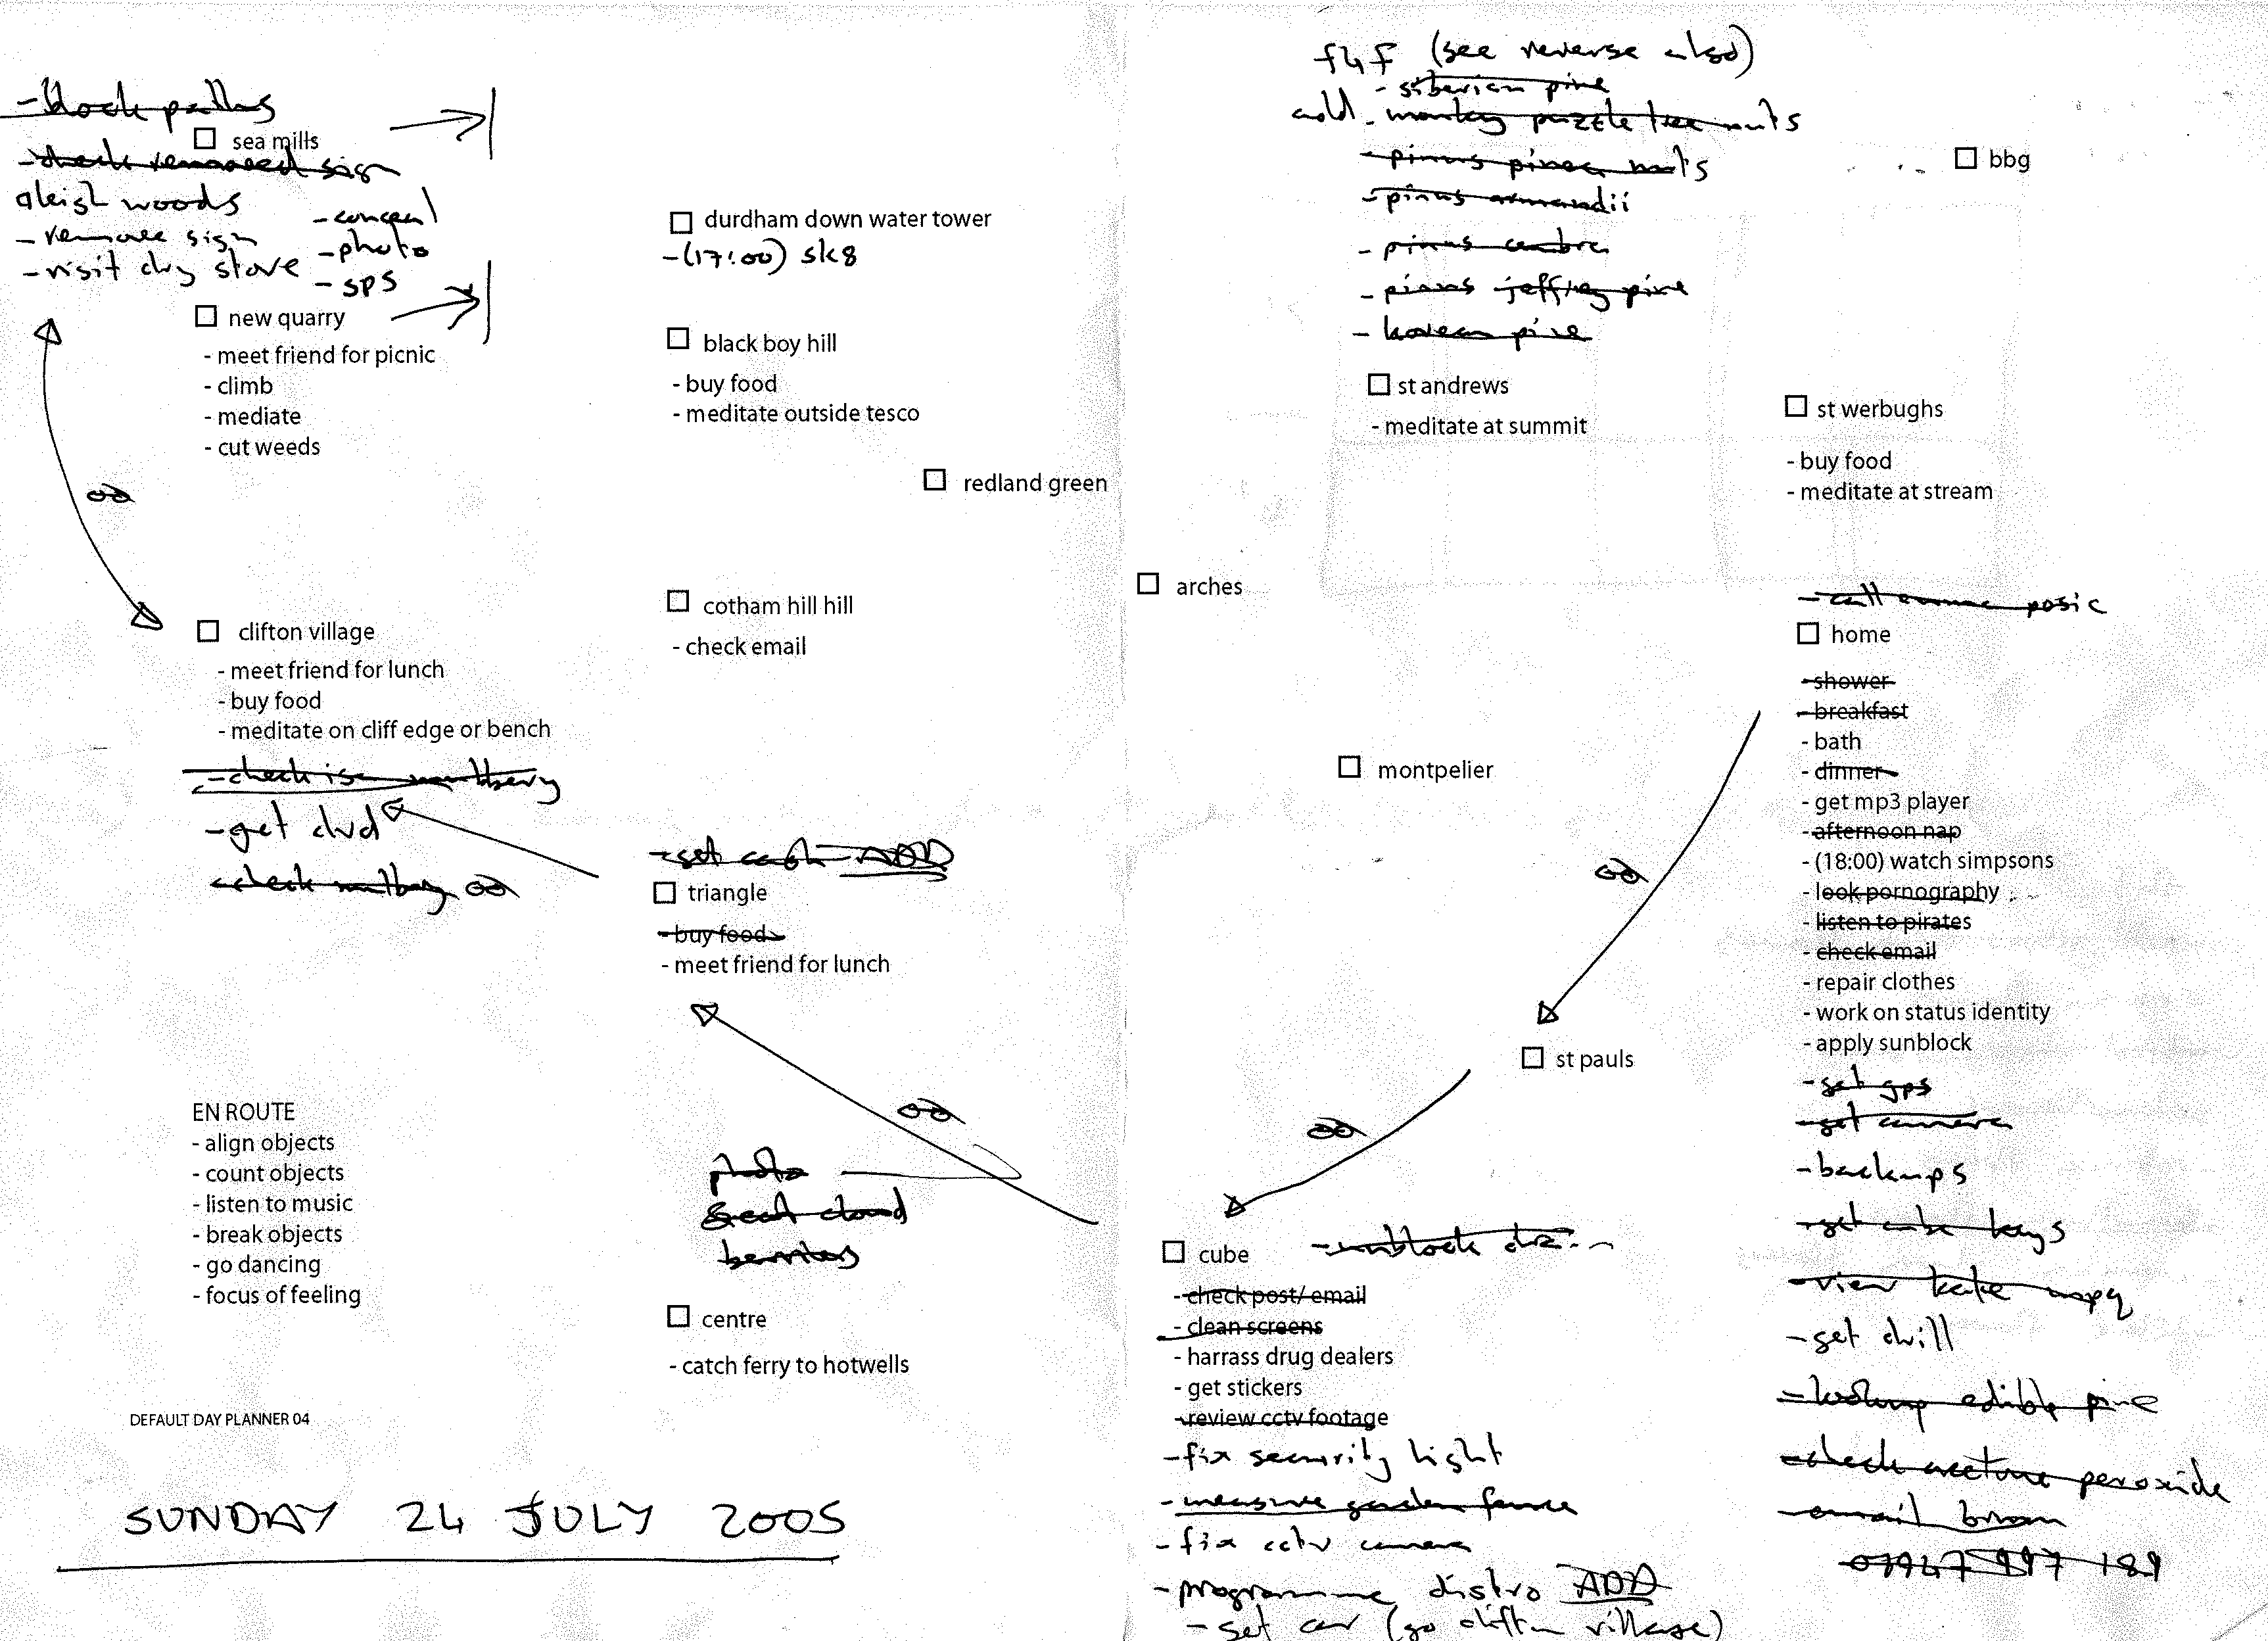 - block paths
sea mills
- check removed sign
aleigh woods
- remove sign
- visit dry stove
- conceal
- photo
- sps
new quarry
- meet friend for picnic
- climb
- mediate
- cut weeds
clifton village
- meet friend for lunch
- buy food
- meditate on cliff edge or bench
- check is mulbery
- get dvd
- check mulbery
EN ROUTE
- align objects
- count objects
- listen to music
- break objects
- go dancing
- focus of feeling
DEFAULT DAY PLANNER 04
SUNDAY 24 JULY 2005
durdham down water tower
- (17:00) sk8
black boy hill
- buy food
- meditate outside tesco
redland green
cotham hill hill
- check email
- get cash ADD
triangle
- buy food
- meet friend for lunch
photo
cloud
berries
centre
- catch ferry to hotwells
f4f (see reverse also)
- siberian pine
add - monkey puzzle tree nuts
- pinus pinea nuts
- pinus armandii
- pinus cembra
- pinus jeffrey pine
- korean pine
st andrews
- meditate at summit
arches
montpelier
st pauls
cube
- unblock
- check post/ email
- clean screens
- harrass drug dealers
- get stickers
- review cctv footage
- fix security light
- measure garden fence
- fix cctv camera
- programme distro ADD
- get car (go clifton village)
bbg
st werbughs
- buy food
- meditate at stream
- call posic
home
- shower
- breakfast
- bath
- dinner
- get mp3 player
- afternoon nap
- (18:00) watch simpsons
- look pornography
- listen to pirates
- check email
- repair clothes
- work on status identity
- apply sunblock
- get gps
- get camera
- backups
- get cube keys
- view kate
- get drill
- lookup edible pine
- check acetone peroxide
- email